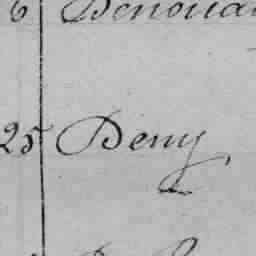 6 Benoua
25 Beny